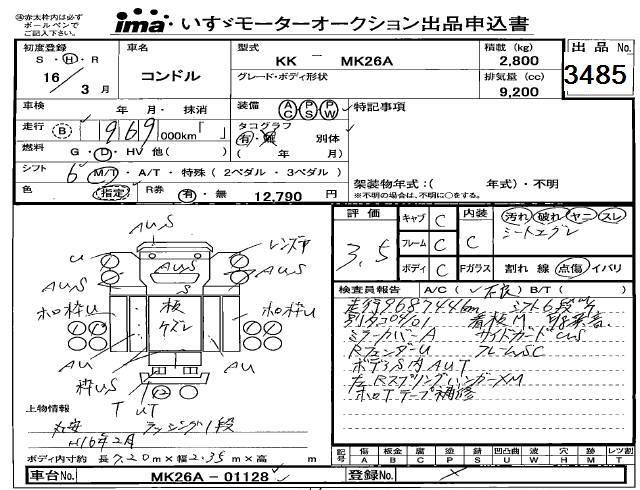 ㊟赤太枠内は必ず
ボールペンで
ご記入下さい。
ima・いすゞモーターオークション出品申込書
初度登録 車名 型式 積載 (kg) 出品 No.
S・H・R コンドル KK － MK26A 2,800 3485
16 3 月 グレード・ボディ形状 排気量 (cc)
9,200
車検 年 月・抹消 装備 AC PS PW 特記事項
走行 B 969 000km「 」 タコグラフ
有・難 別体
燃料 G・D・HV 他( ) ( 年 月)
シフト 6 M/T・A/T・特殊 (2ペダル・3ペダル) 架装物年式:( 年式)・不明
色 指定 R券 有・無 12,790 円 ※不明の場合は、不明に○をする。
評価 キャブ C 内装 汚れ 破れ ヤニ スレ
3.5 フレーム C C シートエグレ
ボディ C Fガラス 割れ 線 点傷 イバリ
検査員報告 A/C (✓不良) B/T ( )
走行968744km シフト6段
看板M
ミラーカバーA サイドガードCUS
RフェンダーU フレームSC
ボディS内AUT
左RスプリングハンガーXM
ホロTテープ補修
AUS
U レンズヤ
AUS AUS AUS
S
ホロ枠U 板 ケズレ ホロ枠U
AU AU
枠US
T UT
上物情報
ラッシング1段
H16年2月
ボディ内寸約 長 7.20 m×幅 2.35 m×高 m
記号 傷 板金 腐 塗 錆 凹凸曲 波 穴 跡 レンズ割
A B C P S U W H M T
車台No. MK26A－01128 登録No.